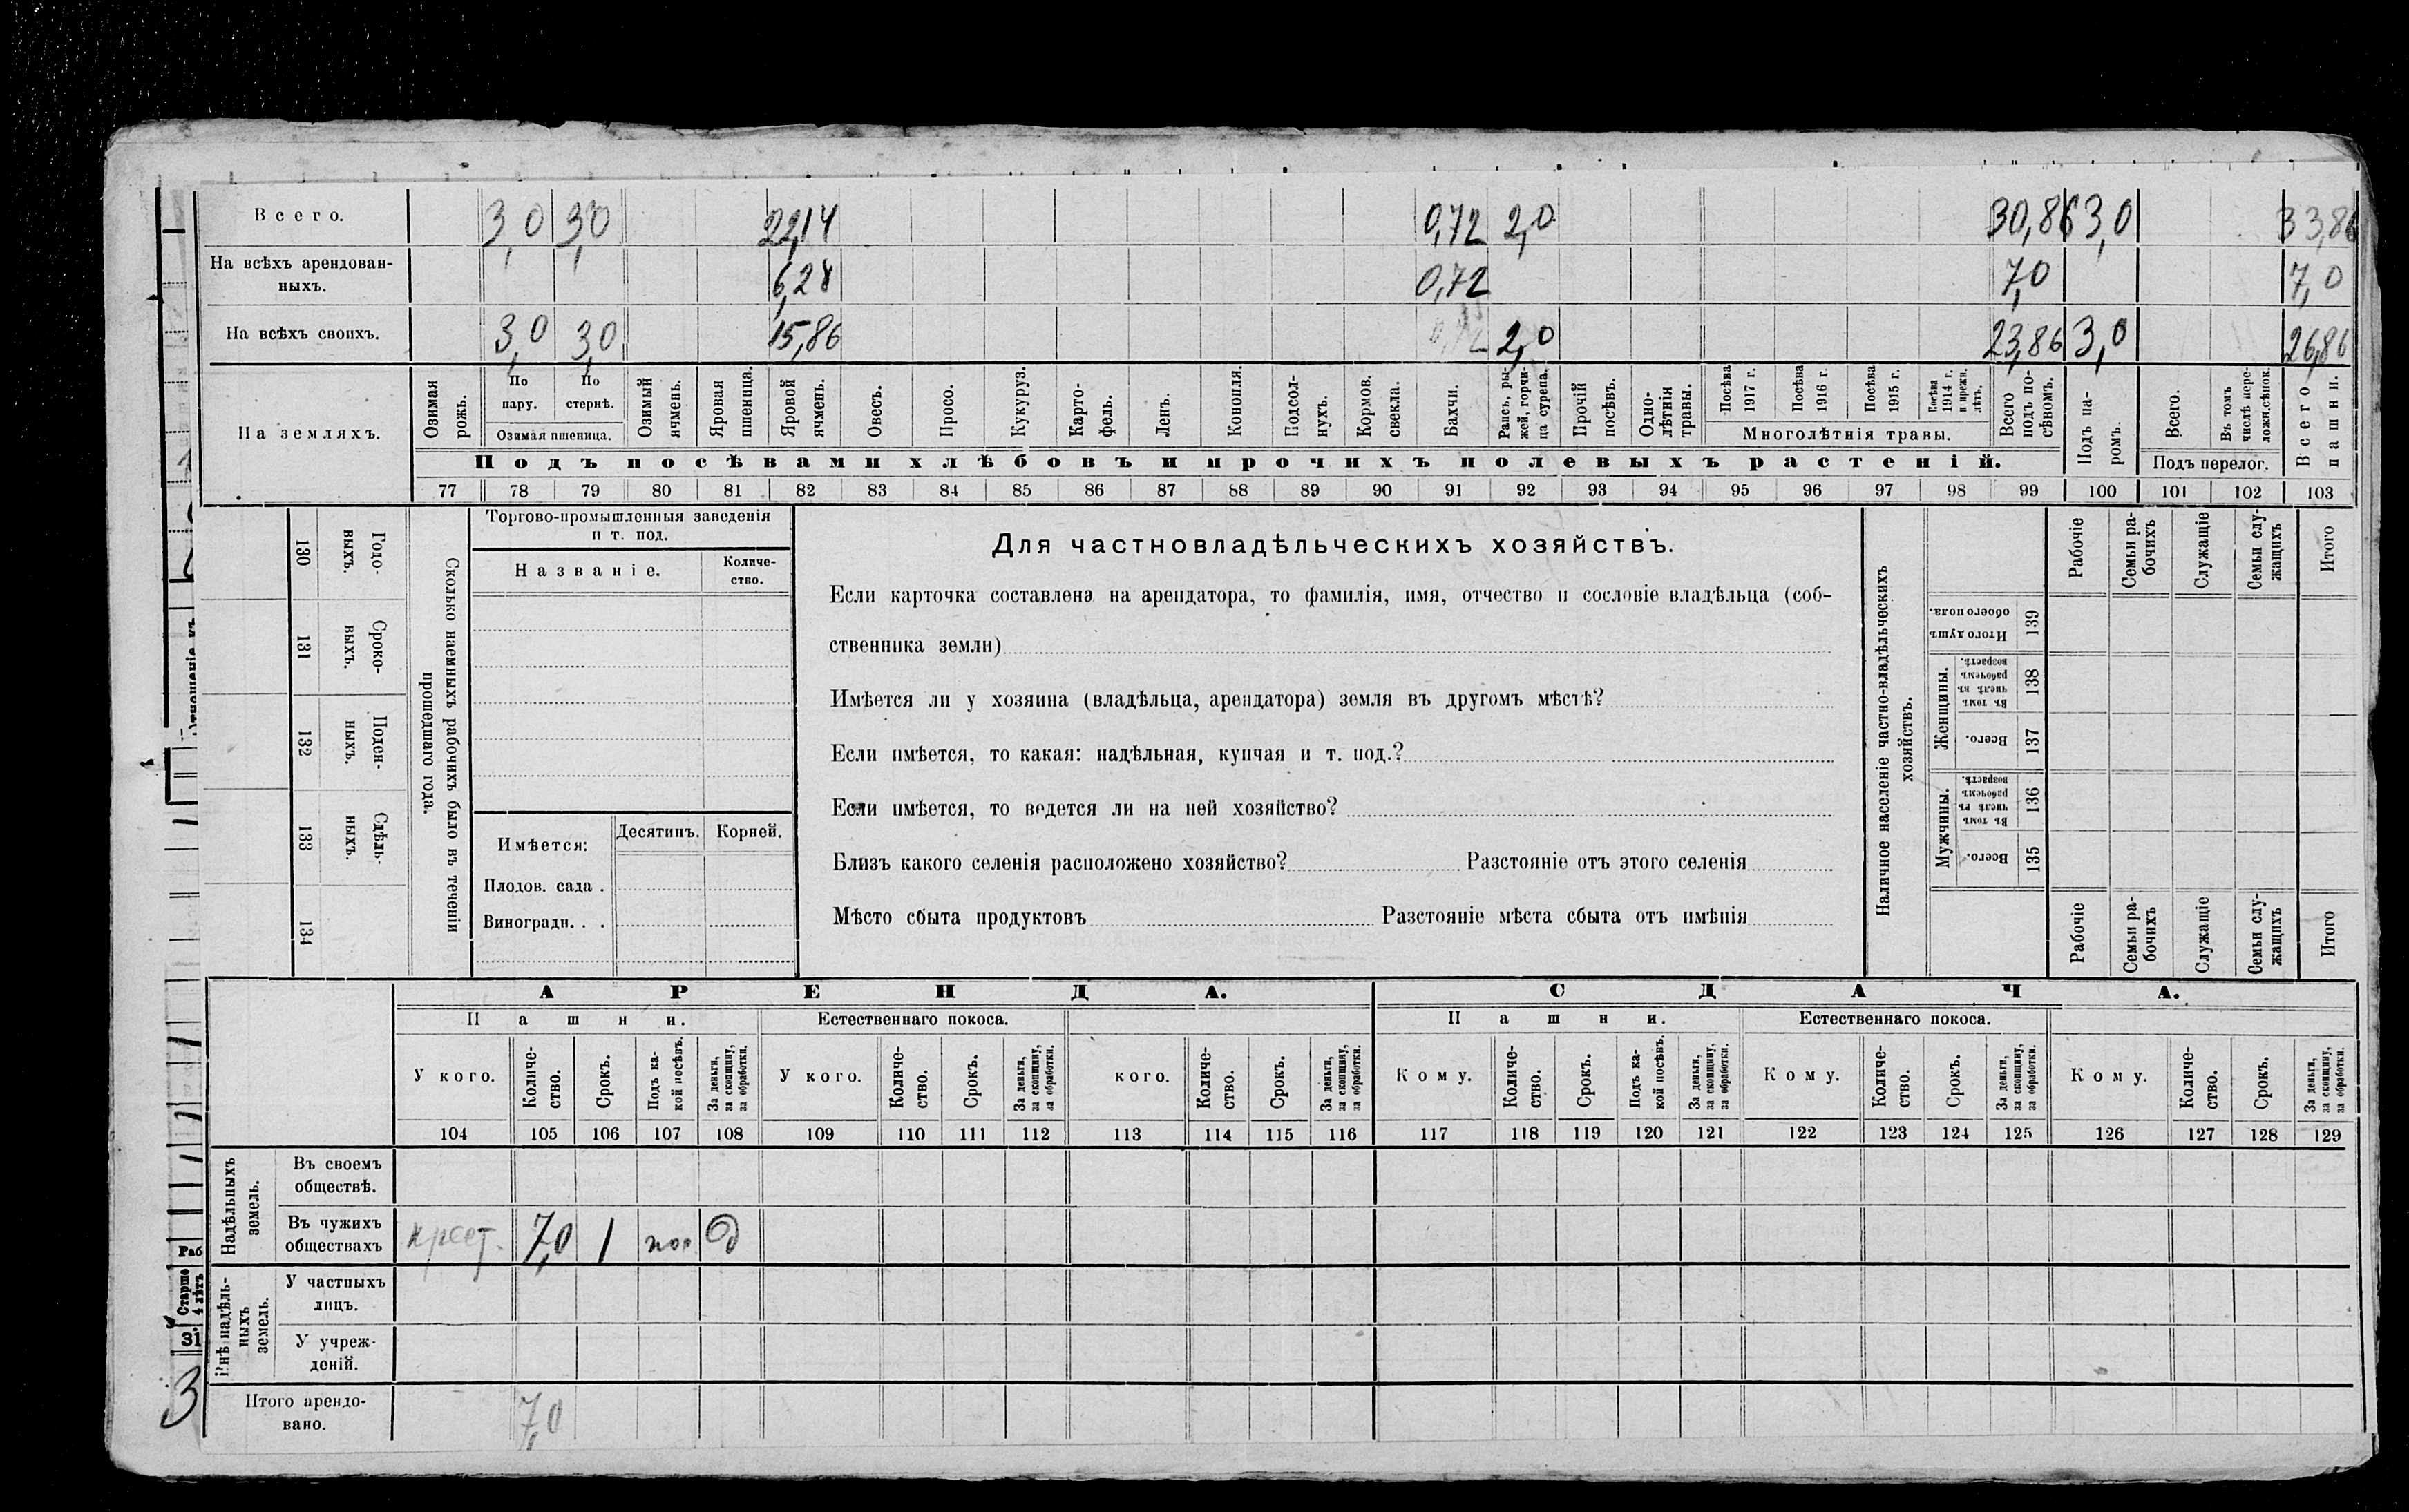 Всего. 3,0 3,0 22,14 0,72 2,0 30,86 3,0 33,86
На всѣхъ арендован-
ныхъ. 6,28 0,72 7,0 7,0
На всѣхъ своихъ. 3,0 3,0 15,86 0,72 2,0 23,86 3,0 26,86
На земляхъ.
Озимая рожь.
По пару.
По стернѣ.
Озимая пшеница.
Озимый ячмень.
Яровая пшеница.
Яровой ячмень.
Овесъ.
Просо.
Кукуруз.
Карто-
фель.
Ленъ.
Конопля.
Подсол-
нухъ.
Кормов. свекла.
Бахчи.
Рапсъ, ры-
жей, горчи-
ца сурепа.
Прочій посѣвъ.
Одно-
лѣтнія травы.
Посѣва 1917 г.
Посѣва 1916 г.
Посѣва 1915 г.
Посѣва 1914 г. и прежн. лѣтъ.
Многолѣтнія травы.
Всего подъ по-
сѣвомъ.
Подъ па-
ромъ.
Всего.
Въ томъ числѣ пере-
ложн.сѣнок.
Подъ перелог.
Всего пашни.
Подъ посѣвами хлѣбовъ и прочихъ полевыхъ растеній.
77 78 79 80 81 82 83 84 85 86 87 88 89 90 91 92 93 94 95 96 97 98 99 100 101 102 103
130 Годо-
выхъ.
131 Сроко-
выхъ.
132 Поден-
ныхъ.
133 Сдѣль-
ныхъ.
134
Сколько наемныхъ рабочихъ было въ теченіи
прошедшаго года.
Торгово-промышленныя заведенія
и т. под.
Названіе.
Количе-
ство.
Имѣется: Десятинъ. Корней.
Плодов. сада .
Виноградн. . .
Для частновладѣльческихъ хозяйствъ.
Если карточка составлена на арендатора, то фамилія, имя, отчество и сословіе владѣльца (соб-
ственника земли)
Имѣется ли у хозяина (владѣльца, арендатора) земля въ другомъ мѣстѣ?
Если имѣется, то какая: надѣльная, купчая и т. под.?
Если имѣется, то ведется ли на ней хозяйство?
Близъ какого селенія расположено хозяйство? Разстояніе отъ этого селенія
Мѣсто сбыта продуктовъ Разстояніе мѣста сбыта отъ имѣнія
Наличное населеніе частно-владѣльческихъ
хозяйствъ.
Рабочіе
Семьи ра-
бочихъ
Служащіе
Семьи слу-
жащихъ
Итого
Итого душъ обоего пола. 139
Женщины.
Въ томъ числѣ въ рабочемъ возрастѣ. 138
Всего. 137
Мужчины.
Въ томъ числѣ въ рабочемъ возрастѣ. 136
Всего. 135
Рабочіе
Семьи ра-
бочихъ
Служащіе
Семьи слу-
жащихъ
Итого
АРЕНДА. СДАЧА.
Пашни. Естественнаго покоса. Пашни. Естественнаго покоса.
У кого. Количе-
ство. Срокъ. Подъ ка-
кой посѣвъ. За деньги, за скопщину, за обработки.
У кого. Количе-
ство. Срокъ. За деньги, за скопщину, за обработки.
кого. Количе-
ство. Срокъ. За деньги, за скопщину, за обработки.
Кому. Количе-
ство. Срокъ. Подъ ка-
кой посѣвъ. За деньги, за скопщину, за обработки.
Кому. Количе-
ство. Срокъ. За деньги, за скопщину, за обработки.
Кому. Количе-
ство. Срокъ. За деньги, за скопщину, за обработки.
104 105 106 107 108 109 110 111 112 113 114 115 116 117 118 119 120 121 122 123 124 125 126 127 128 129
Надѣльныхъ земель.
Въ своемъ
обществѣ.
Въ чужихъ
обществахъ крест. 7,0 1
Внѣ надѣль-
ныхъ земель.
У частныхъ
лицъ.
У учреж-
деній.
Итого арендо-
вано. 7,0
Раб
Старше
4 лѣтъ
31
3